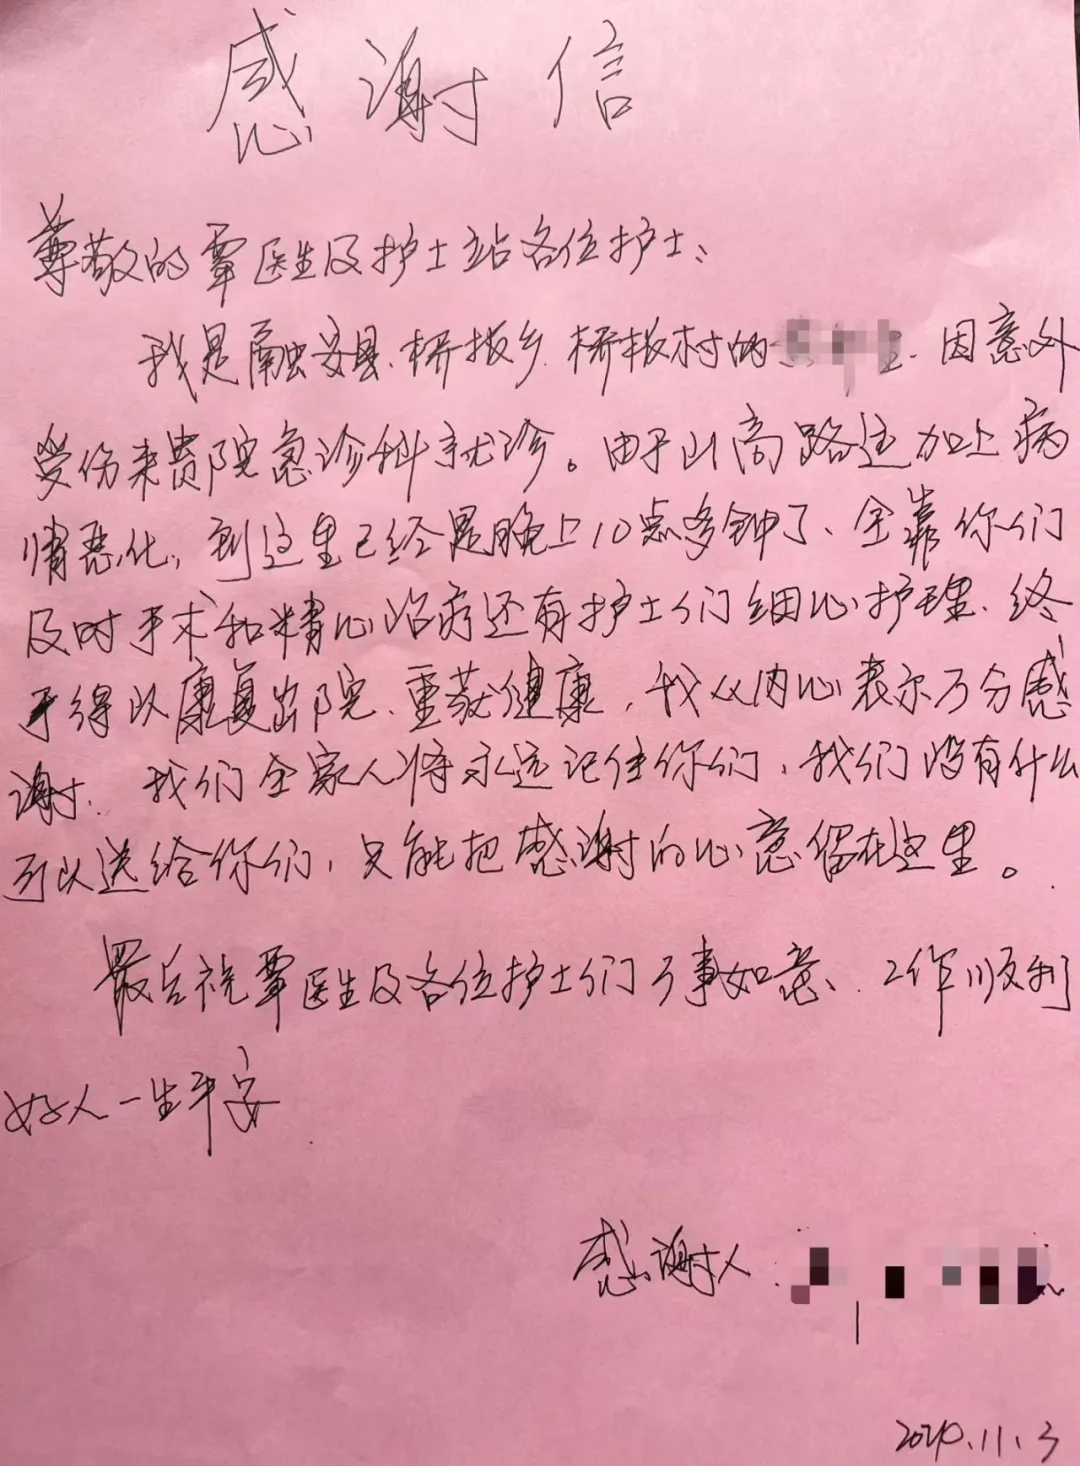 感谢信
尊敬的覃医生及护士站各位护士:
我是融安县.桥板乡.桥板村的 . 因意外
受伤来贵院急诊科就诊。由于山高路远加上病
情恶化,到这里已经是晚上10点多钟了、全靠你们
及时手术和精心治疗还有护士们细心护理.终
于得以康复出院.重获健康,我从内心表示万分感
谢.我们全家人将永远记住你们,我们没有什么
可以送给你们,只能把感谢的心意留在这里。
最后祝覃医生及各位护士们万事如意、工作顺利
好人一生平安
感谢人:
2020.11.3